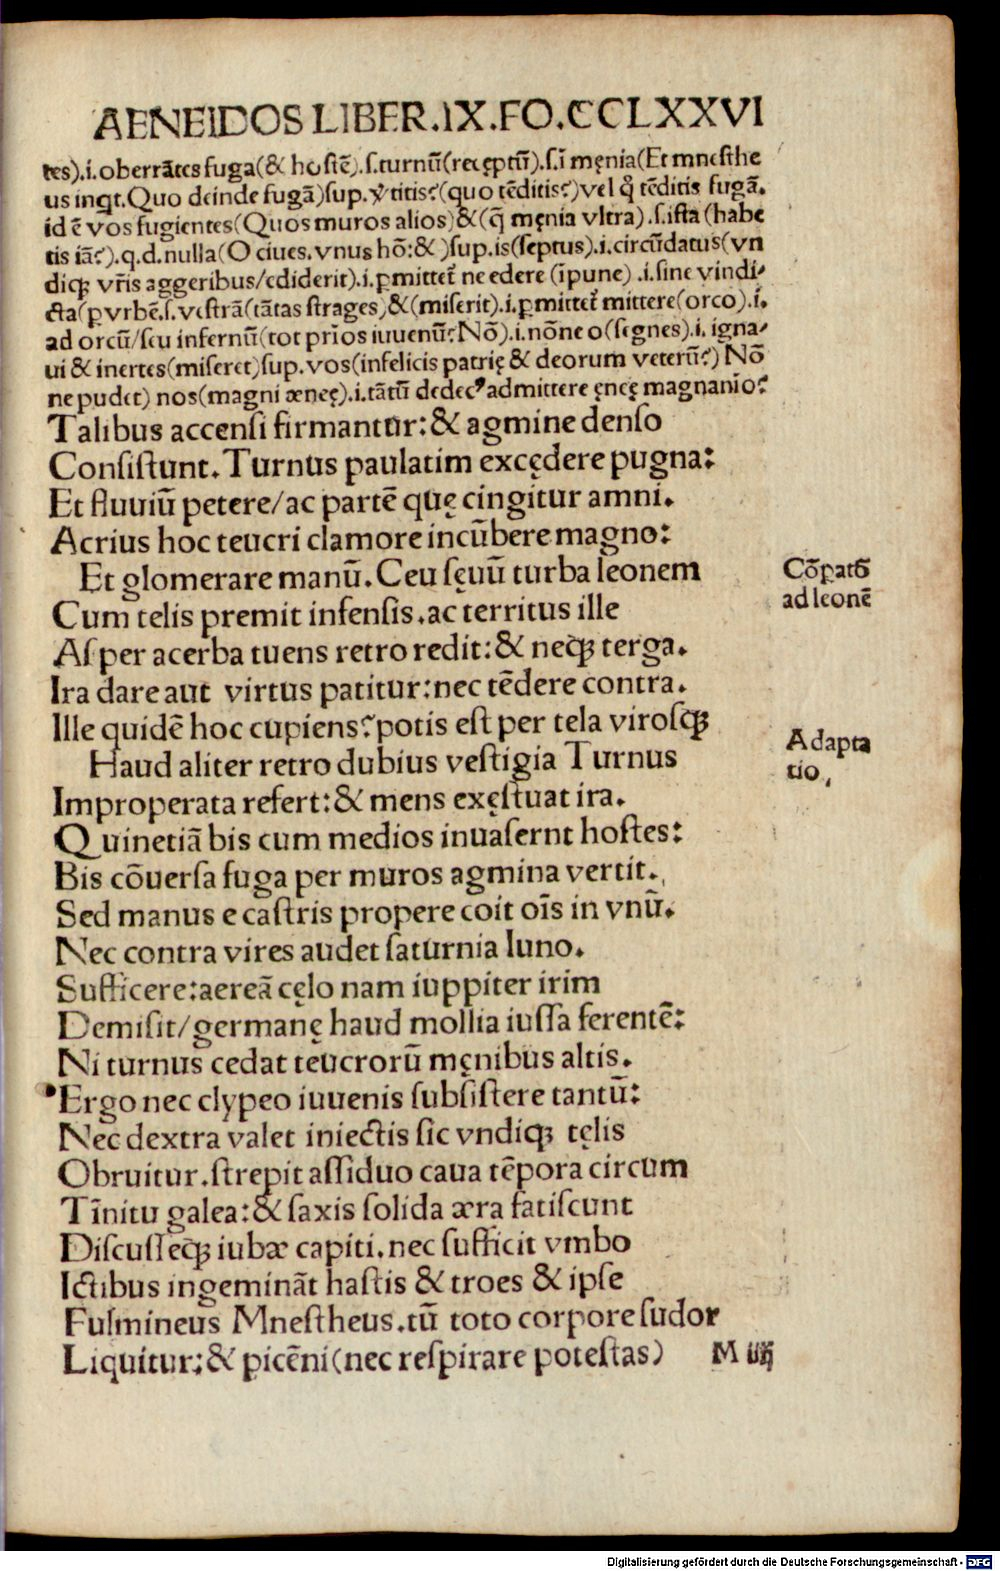 AENEIDOS LIBER.IX.FO.CCLXXVI
tes).i.oberrātes fuga(& hostē).s.turnū(receptū).s.ī męnia(Et mnesthe
us inqt.Quo deinde fugā)sup.v̓titis?(quo tēditis?)vel qͥ tēditis fugā.
id ē vos fugientes(Quos muros alios)&(q̄ męnia vltra).s.ista(habe
tis iā?).q.d.nulla(O ciues.vnus hō:&)sup.is(septus).i.circūdatus(vn
diqꝫ vr̄is aggeribus/ediderit).i.ꝑmittet᷑ ne edere (īpune) .i.sine vindi⸗
cta(ꝑ vrbē.s.vestrā(tātas strages)&(miserit).i.ꝑmittet᷑ mittere(orco).i.
ad orcū/seu infernū(tot prīos iuuenū?Nō).i.nōne o(segnes).i. igna⸗
ui & inertes(miseret)sup.vos(infelicis patrię & deorum veterū?) Nō
ne pudet) nos(magni æneę).i.tātū dedecꝰ admittere ęneę magnanīo?
Talibus accensi firmantur:& agmine denso
Consistunt.Turnus paulatim excędere pugna:
Et fluuiū petere/ac partē quę cingitur amni.
Acrius hoc teucri clamore incūbere magno:
Et glomerare manū.Ceu sęuū turba leonem
Cōpatō
Cum telis premit infensis.ac territus ille
ad leonē
Asper acerba tuens retro redit:& neqꝫ terga.
Ira dare aut virtus patitur:nec tēdere contra.
Ille quidē hoc cupiens?potis est per tela virosqꝫ
Haud aliter retro dubius vestigia Turnus
Adapta
tio.
Improperata refert:& mens exęstuat ira.
Quinetiā bis cum medios inuasernt hostes:
Bis cōuersa fuga per muros agmina vertit.
Sed manus e castris propere coit oīs in vnū.
Nec contra vires audet saturnia Iuno.
Sufficere:aereā cęlo nam iuppiter irim
Demisit/germanę haud mollia iussa ferentē:
Ni turnus cedat teucrorū męnibus altis.
Ergo nec clypeo iuuenis subsistere tantū:
Nec dextra valet iniectis sic vndiqꝫ tęlis
Obruitur.strepit assiduo caua tēpora circum
Tīnitu galea:& saxis solida æra fatiscunt
Discusseqꝫ iubæ capiti.nec sufficit vmbo
Ictibus ingemināt hastis & troes & ipse
Fulmineus Mnestheus.tū toto corpore sudor
Liquitur:& picēni(nec respirare potestas)
M iiij
Digitalisierung gefördert durch die Deutsche Forschungsgemeinschaft - DFG